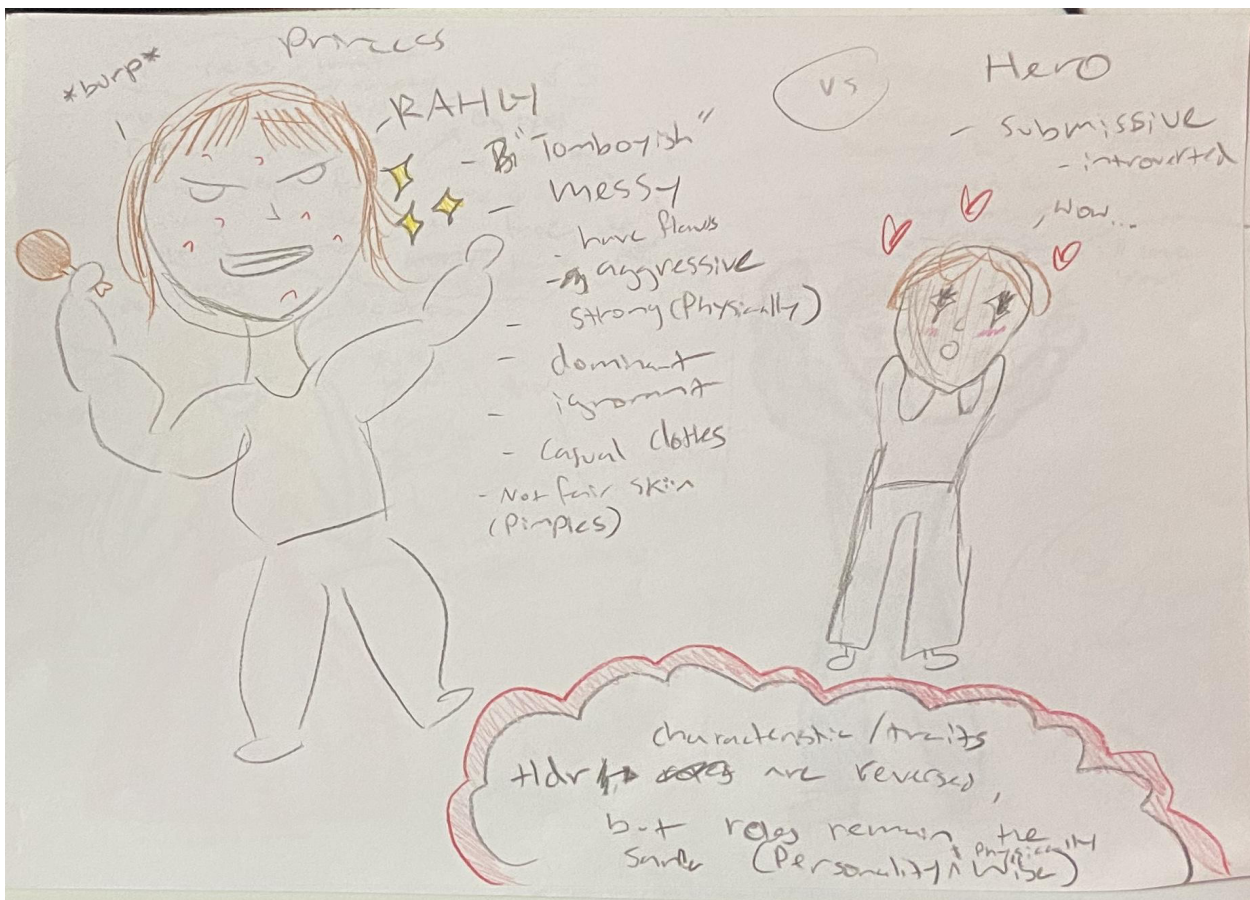 *burp*
Princess
RAHH
- "Tomboyish"
- messy
have flaws
- aggressive
- strong (Physically)
- dominant
- ignorant
- Casual clothes
- Not fair skin
(Pimples)
vs
Hero
- Submissive
- introverted
wow...
characteristic/traits
tldr are reversed,
but roles remain the
same (Personality + Physically wise)